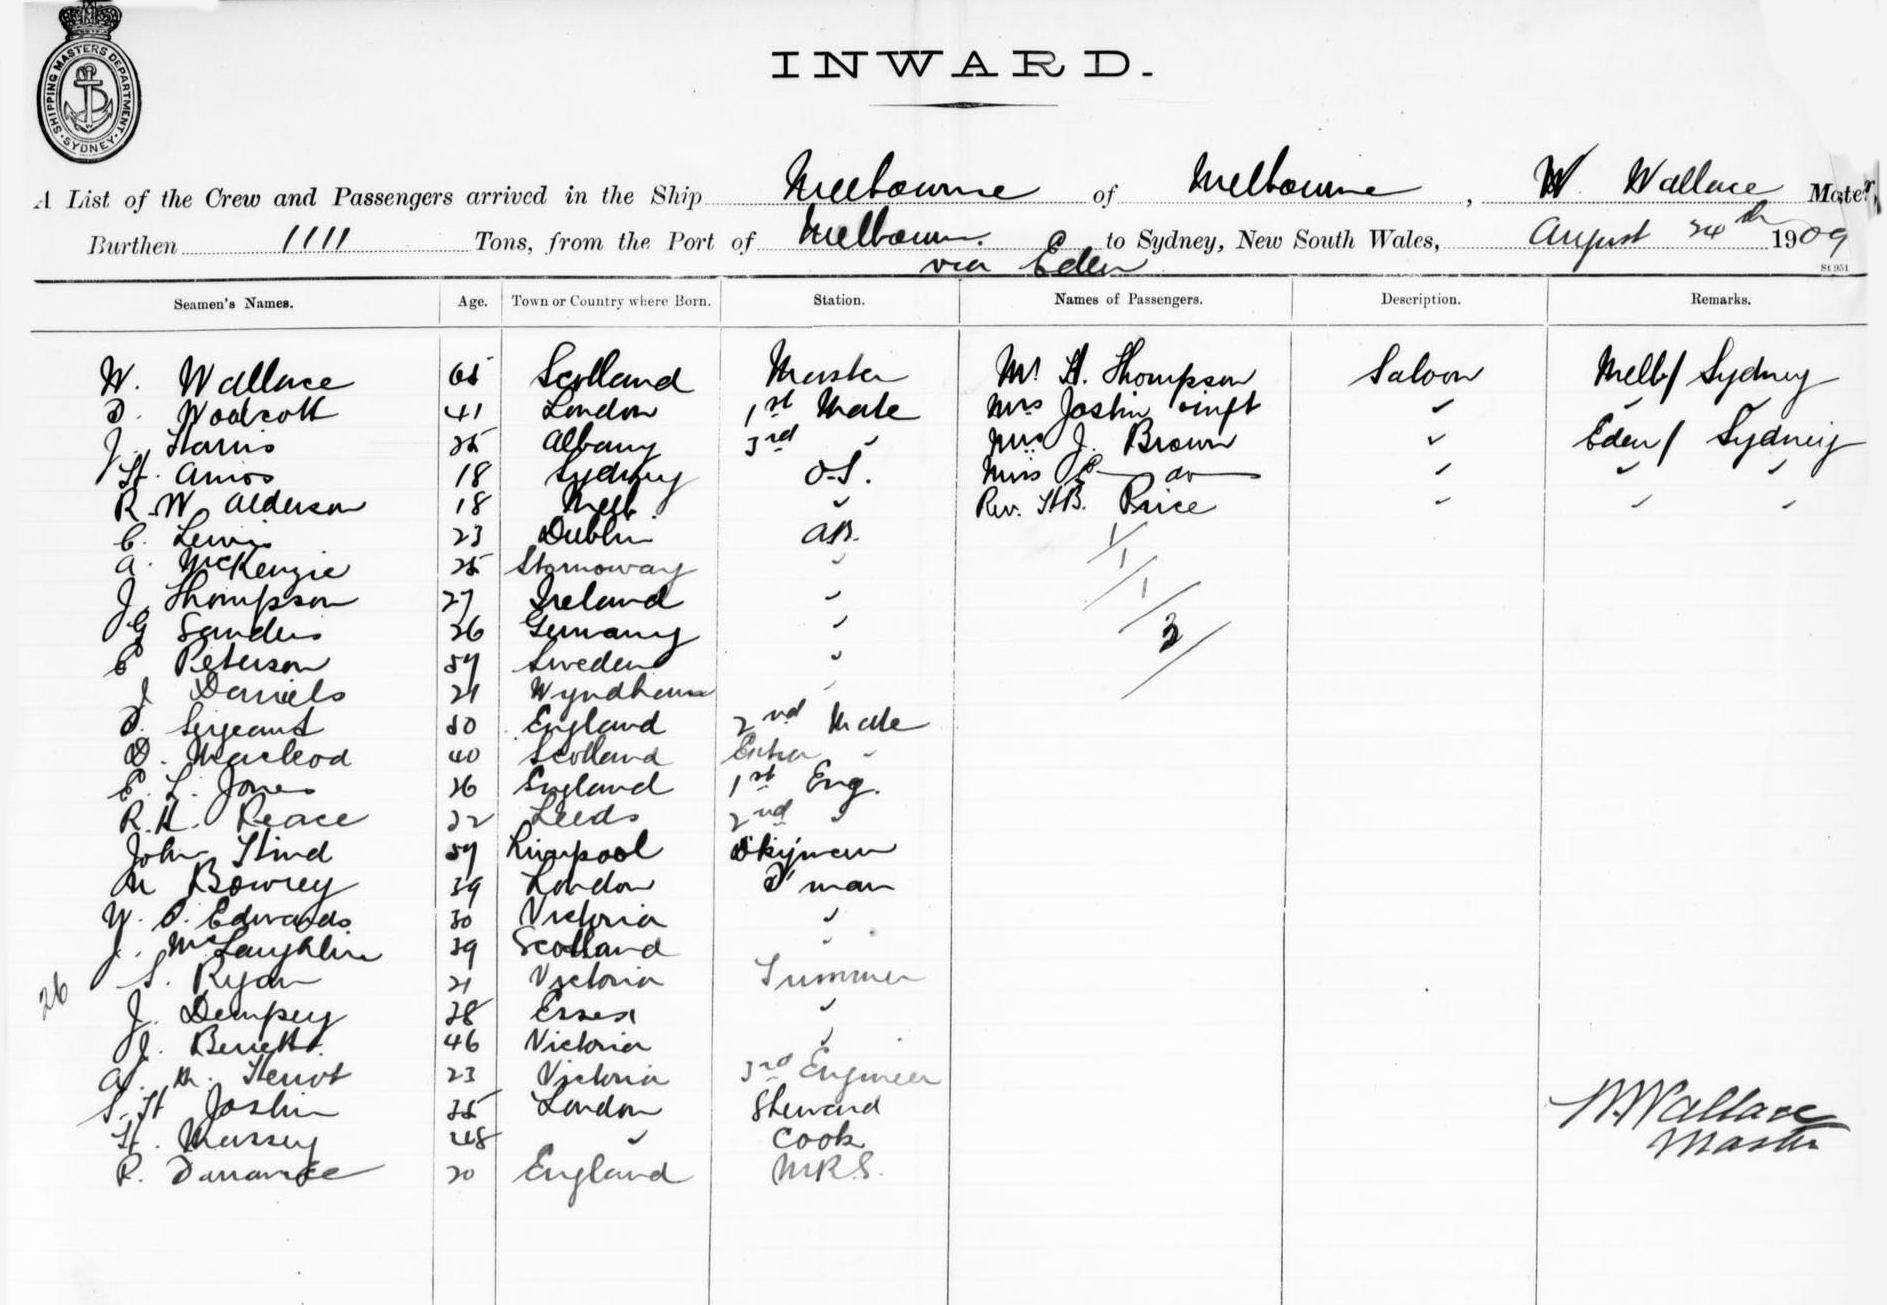 SHIPPING MASTERS DEPARTMENT
SYDNEY
INWARD.
A List of the Crew and Passengers arrived in the Ship Melbourne of Melbourne, W. Wallace Master,
Burthen 1111 Tons, from the Port of Melbourne to Sydney, New South Wales, August 24th 1909
via Eden
St 951
Seamen's Names. Age. Town or Country where Born. Station. Names of Passengers. Description. Remarks.
W. Wallace 65 Scotland Master Mr H. Thompson Saloon Melb/ Sydney
Woodcott 41 London 1st Mate Mrs Joslin inft " " "
J. Harris 25 Albany 3rd " Mrs J. Brown " Eden/ Sydney
H. Amos 18 Sydney O.S. Miss E do " " "
R. W. Alderson 18 Melb " Rev. H.B. Price " " "
C. Lewis 23 Dublin AB. 1/
A. McKenzie 25 Stornoway " 1/
J. Thompson 27 Ireland " 1/
G Sanders 26 Germany " 3/
Peterson 59 Sweden "
J Daniels 21 Wyndham "
Sergeant 50 England 2nd Mate
D. Macleod 40 Scotland Extra "
E. L. Jones 26 England 1st Eng.
R.H. Peace 32 Leeds 2nd "
John Hind 59 Liverpool Dkyman
M Bowrey 39 London F'man
Edwards 30 Victoria "
J. McLaughlin 39 Scotland "
26
S. Ryan 21 Victoria Trimmer
J. Dempsey 28 Essex "
J. Berrett 46 Victoria "
A. M. Heriot 23 Victoria 3rd Engineer
S. H Joslin 35 London Steward
H. Massey 48 " Cook
R. 20 England M.R.S.
W. Wallace
Master